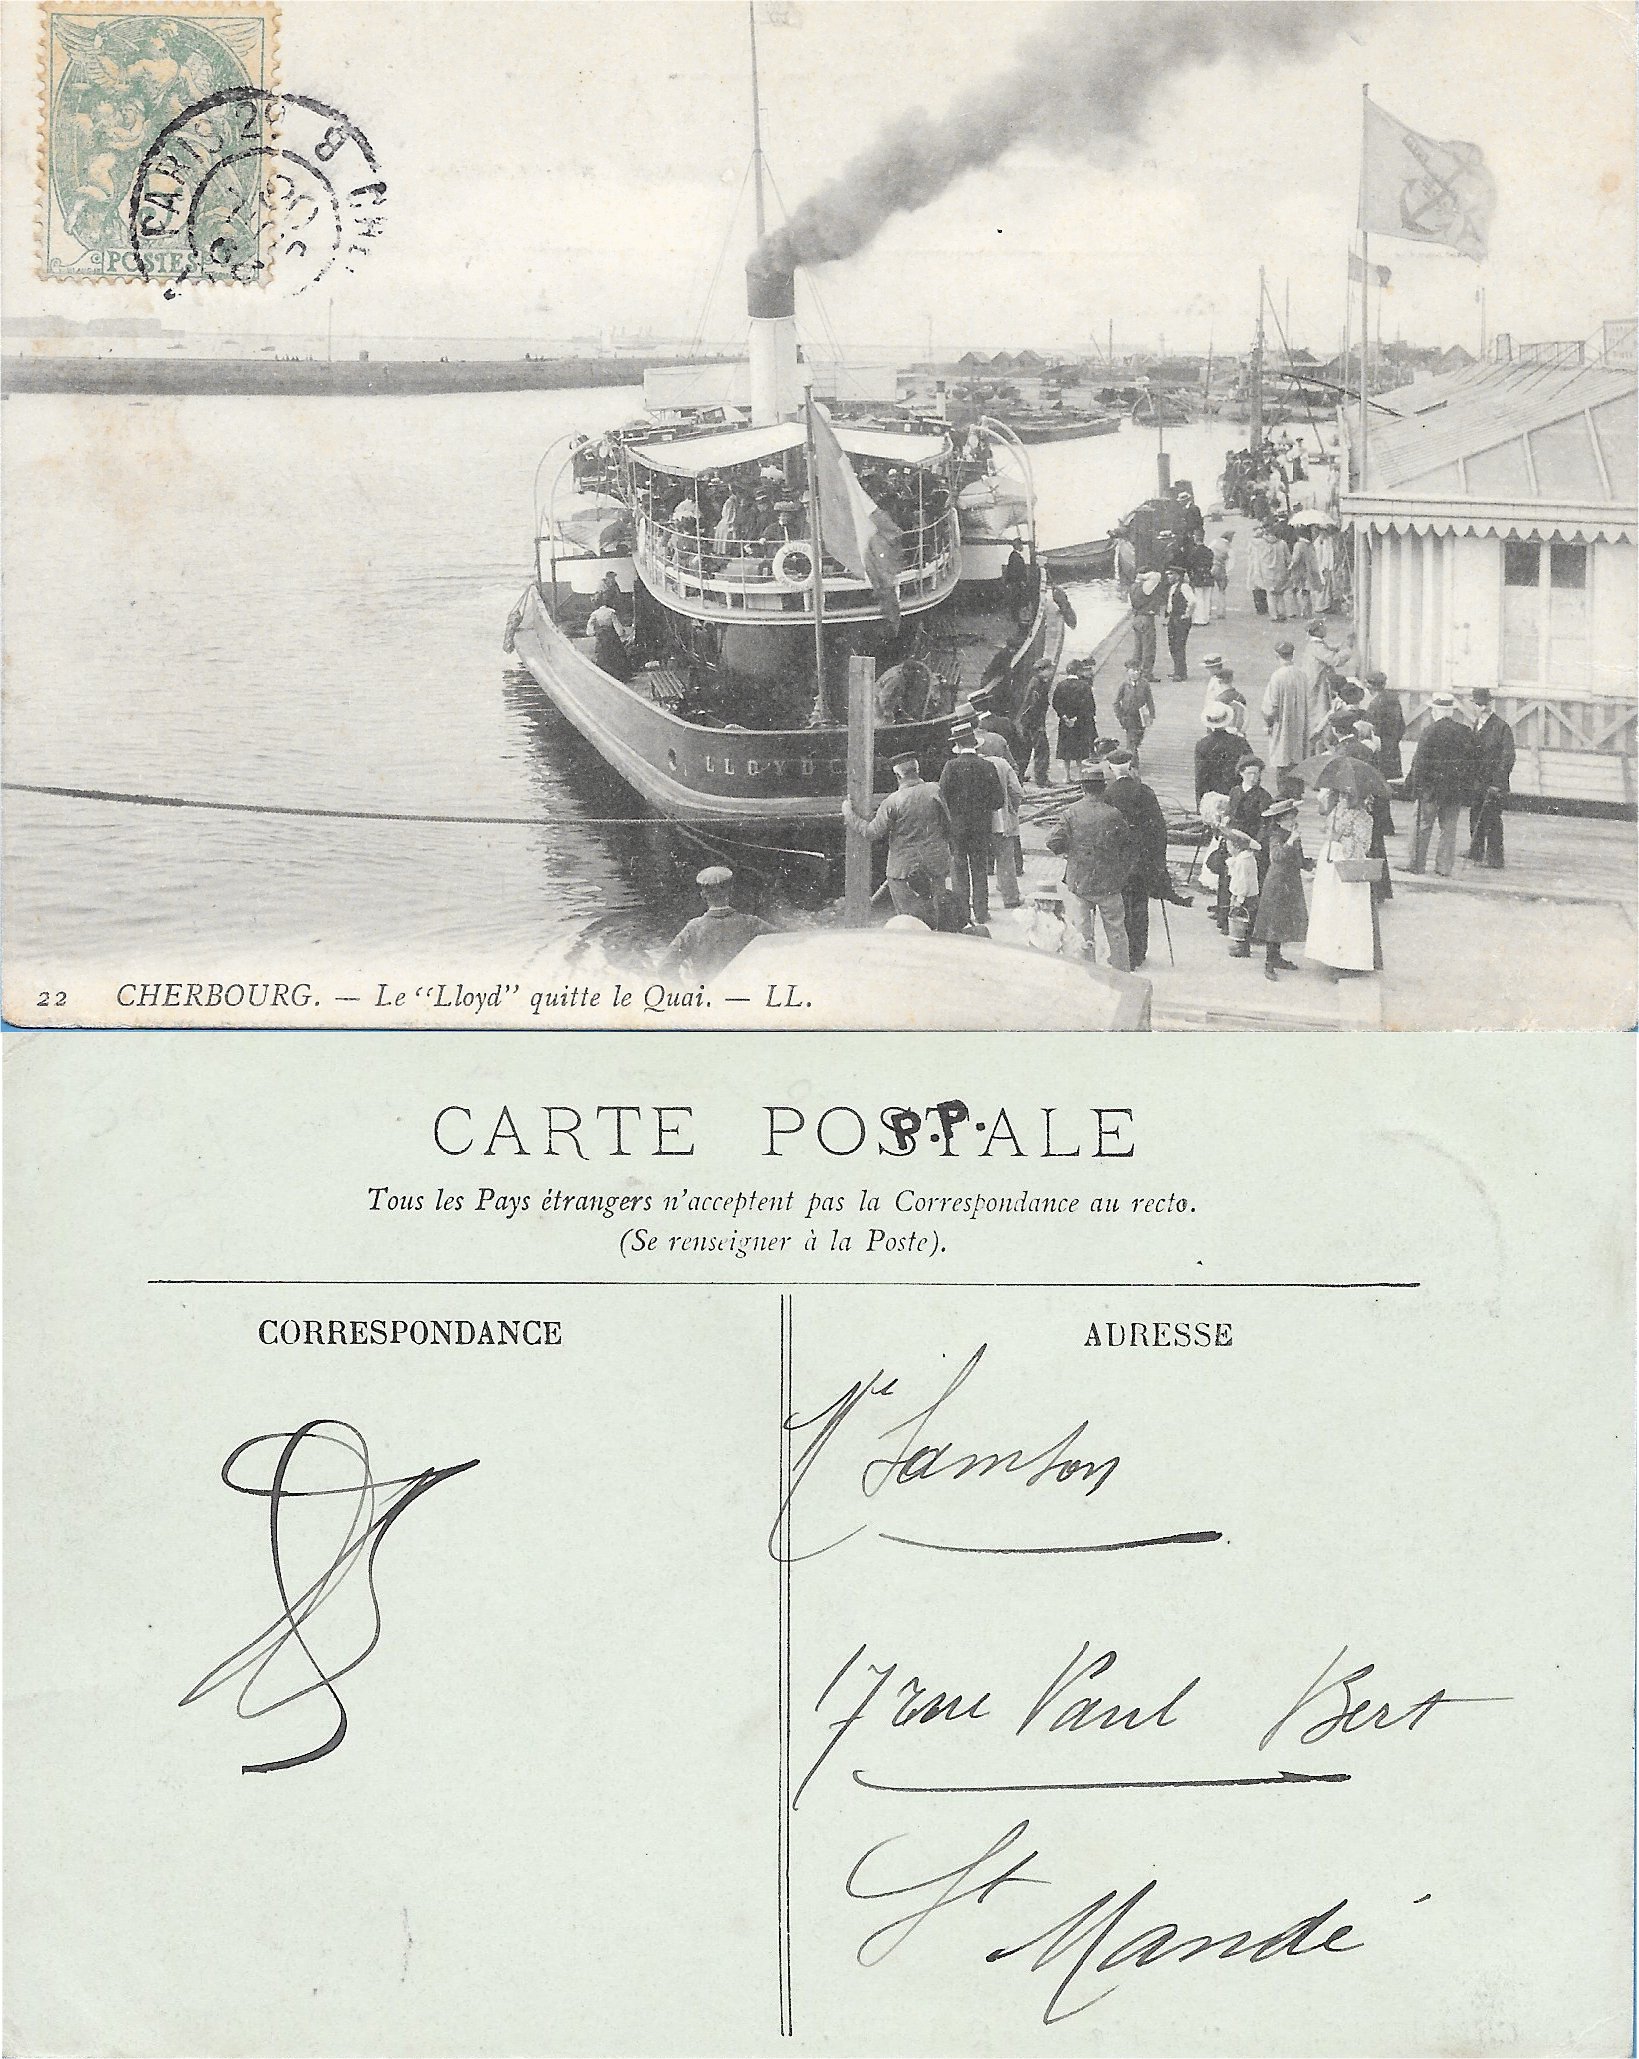 POSTES
PARIS 29
LLOYD
22 CHERBOURG. — Le "Lloyd" quitte le Quai. — LL.
CARTE POSTALE
P.P.
Tous les Pays étrangers n'acceptent pas la Correspondance au recto.
(Se renseigner à la Poste).
CORRESPONDANCE
ADRESSE
Samson
17 rue Paul Bert
St Mandé